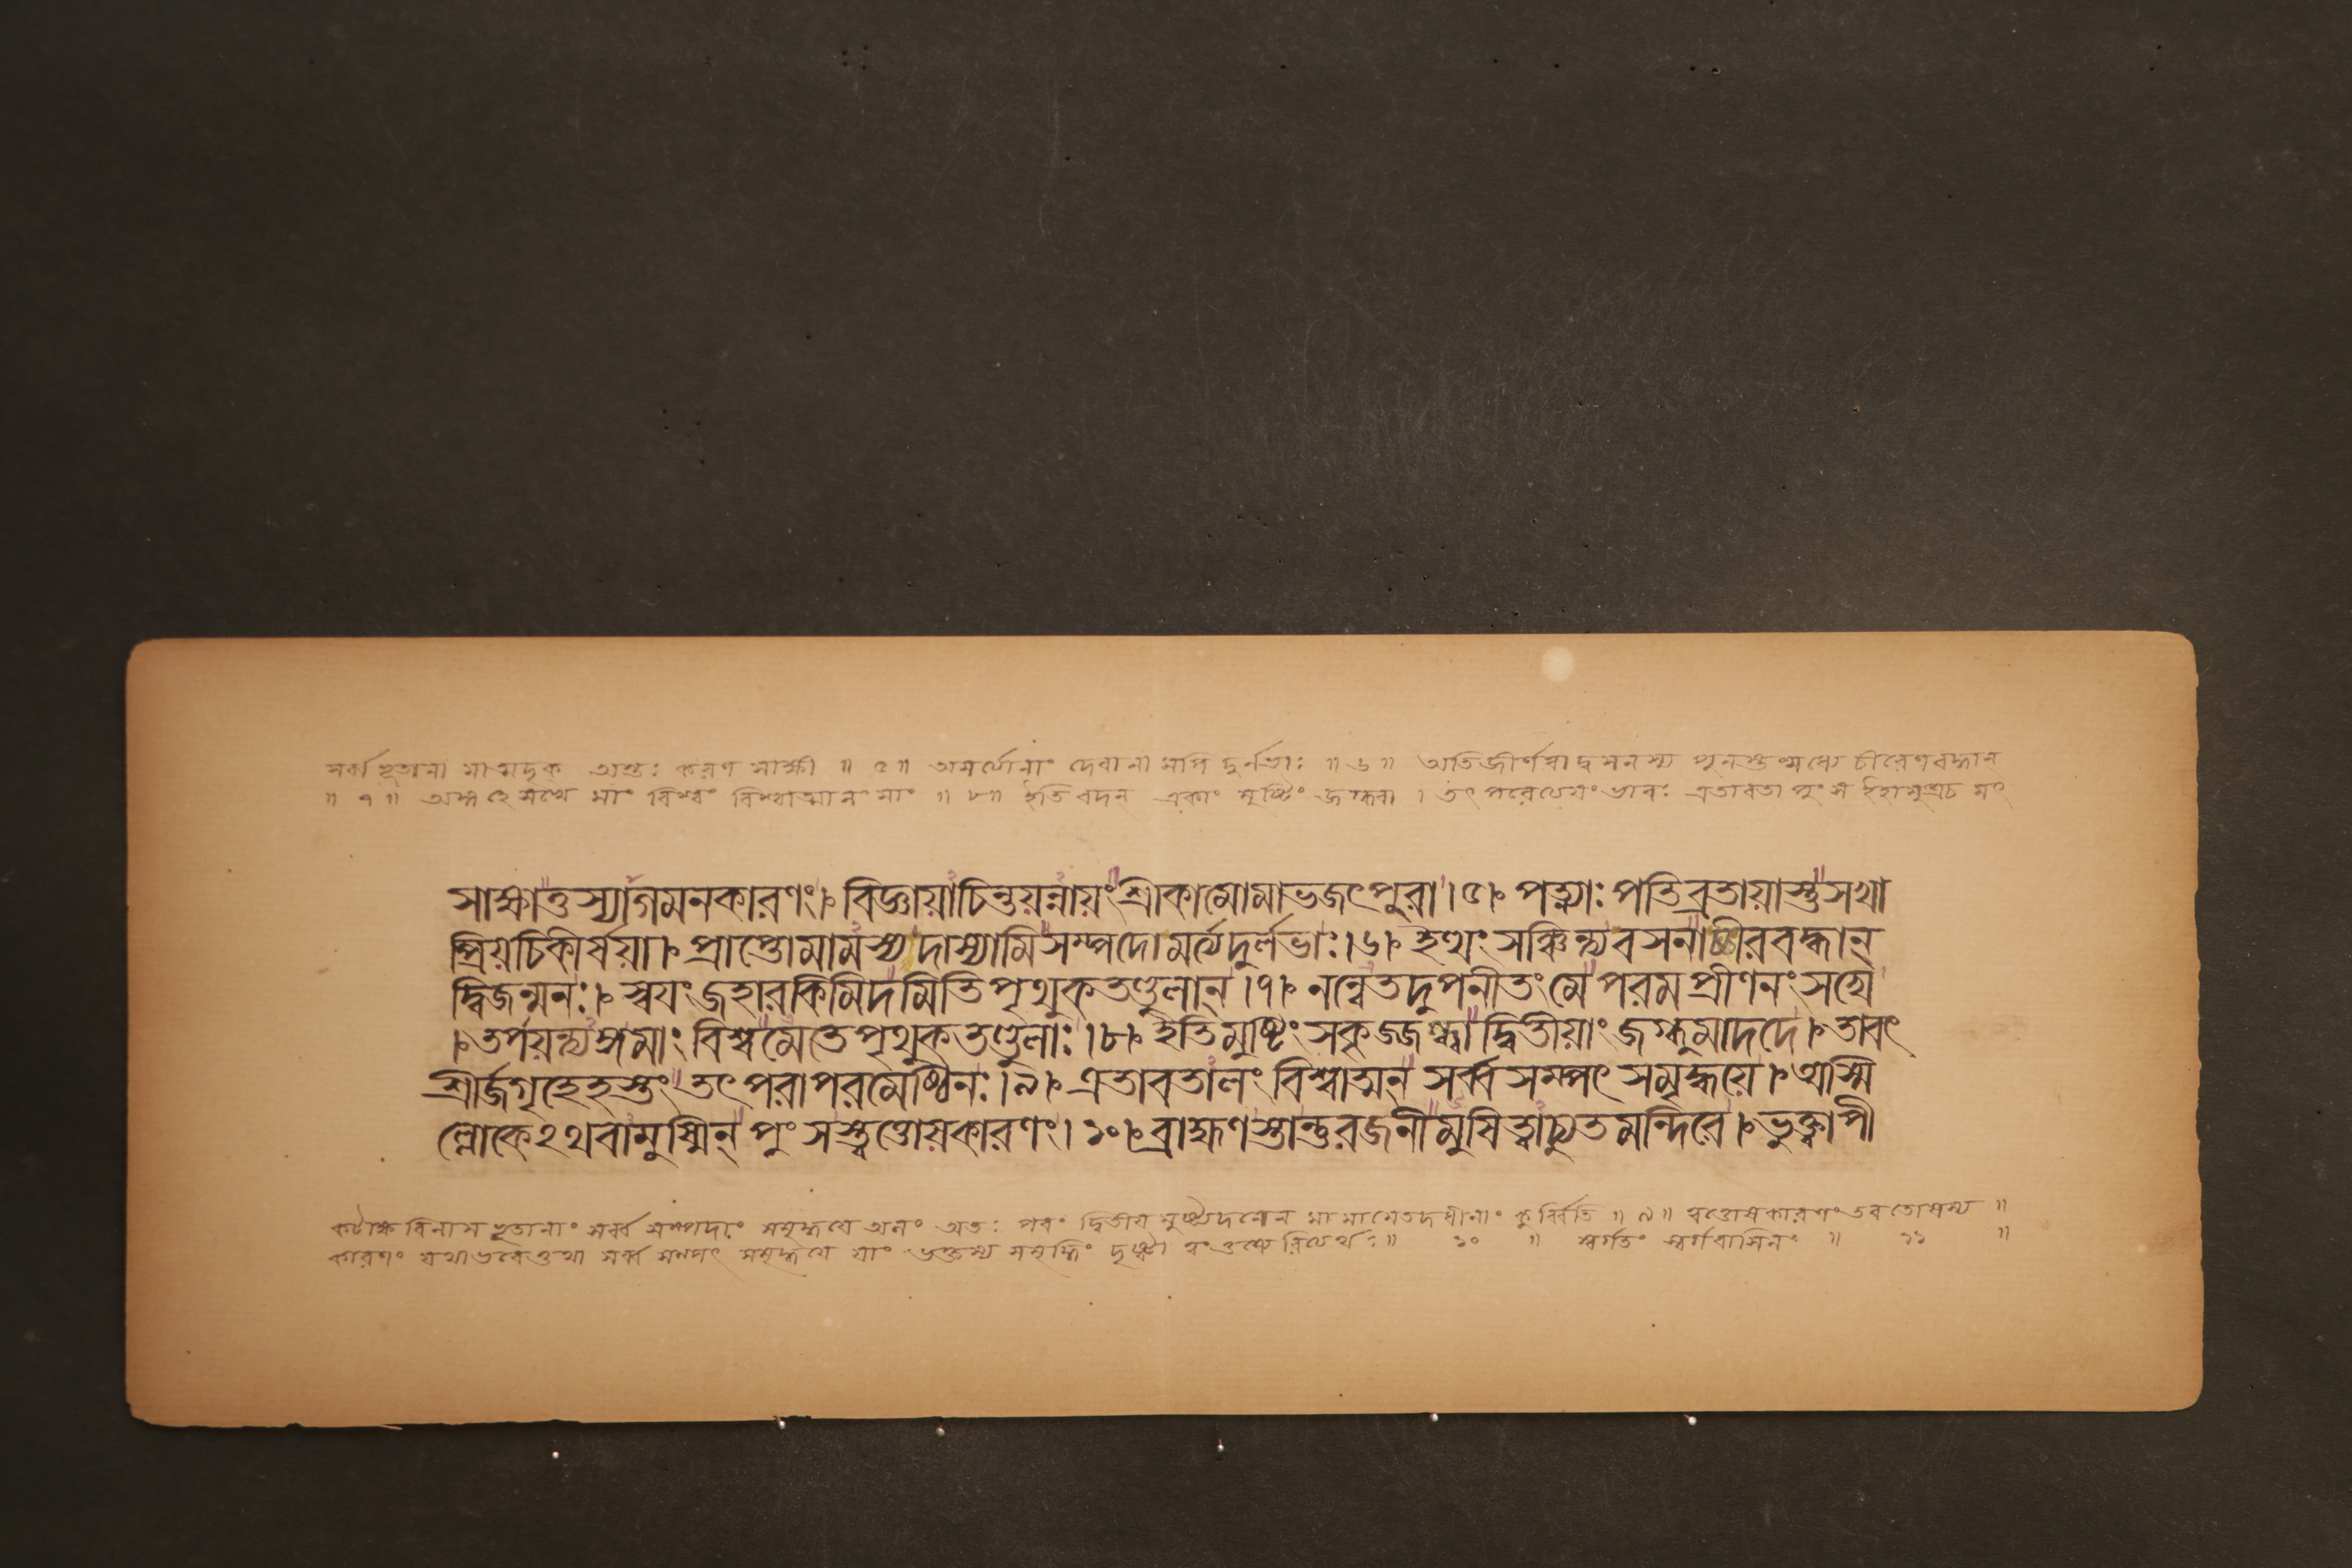 সর্ব্বভূতানামাত্মদৃক্ অন্তঃ করণ সাক্ষী ॥ ৫॥ অমর্ত্যানাং দেবানামপি দুর্লভাঃ ॥ ৬॥ অতিজীর্ণ পুনস্তন্মধ্যে চীরেণবদ্ধান
॥ ৭॥ অঙ্গ হে সখে মাং বিশ্বং বিশ্বাত্মানং মাং ॥ ৮॥ ইতি বদন্ একাং মুষ্টিং জগ্ধ্বা । ভাবঃ এতাবতা পুংস ইহামুত্রচ
সাক্ষাত্তস্যাগমনকারণং।৷ বিজ্ঞায়াচিন্তয়ন্নায়ং শ্রীকামোমাভজৎপুরা।৫৷ পত্ন্যাঃ পতিব্রতায়াস্তুসখা
প্রিয়চিকীর্ষয়া।৷ প্রাপ্তোমামস্য দাস্যামিসম্পদোমর্ত্যদুর্লভাঃ।৬৷ ইত্থং সঞ্চিন্ত্যবসনাচ্চীরবদ্ধান্
দ্বিজন্মনঃ।৷ স্বয়ং জহারকিমিদমিতিপৃথুকতণ্ডুলান্।৭৷ নন্বেতদুপনীতং মে পরমপ্রীণনং সখে
।৷ তর্পয়ন্ত্যঙ্গমাং বিশ্বমেতেপৃথুকতণ্ডুলাঃ।৮৷ ইতিমুষ্টিং সকৃজ্জগ্ধ্বাদ্বিতীয়াং জগ্ধুমাদদে।৷ তাবৎ
শ্রীর্জগৃহেহস্তং তৎপরাপরমেষ্ঠিনঃ।৯৷ এতাবতালং বিশ্বাত্মন্ সর্ব্বসম্পৎ সমৃদ্ধয়ে।৷ অস্মি
ল্লোকেঽথবামুষ্মিন্ পুংসস্ত্বত্তোষকারণং।১০৷ ব্রাহ্মণস্তান্তুরজনীমুষিত্বাচ্যুতমন্দিরে।৷ ভুক্ত্বাপী
কটাক্ষ বিলাস ভূতানাং সর্ব্ব সম্পদাং সমৃদ্ধয়ে অলং অতঃ পরং দ্বিতীয় মা কুর্ব্বিতি ॥ ৯॥ ত্বত্তোষকারণং ॥
কারণং যথাভবেত্তথা সর্ব্ব সম্পৎ সমৃদ্ধয়ে সমৃদ্ধিং দৃষ্ট্বা ॥ ১০ ॥ স্বর্গতং স্বর্গবাসিনং ॥ ১১ ॥